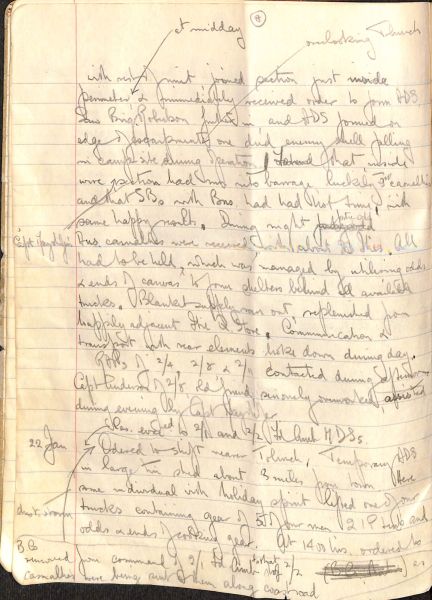 at midday
8
overlooking Tobruk
with rest of unit joined section just inside
perimeter & immediately received order to form ADS.
Saw Brig. Robertson in, and ADS formed on
edge of escarpment, one dud enemy shell falling
in camp site during operation. Found that inside
wire section had run into barrage luckily casualties
and that SBs with Bns had had "hot time" with
same happy results. During night
Capt
Pus. casualties were received with adv All
had to be held, which was managed by utilising odds
& ends of canvas to form shelters behind all available
trucks. Blanket supply ran out, replenished from
happily adjacent Ice Q Store. Communication &
transport with rear elements broke down during day.
RAPs of 2/4, 2/8 & 2/ contacted during afternoon
Capt Anderson of 2/8 Bn found seriously overworked, assisted
during evening by Capt
Cas. evac to 2/1 and 2/2 Fd Amb MDSs.
22 Jan
Ordered to shift nearer Tobruk, Temporary ADS
in large tin shed about 3 miles from town Here
some individual with holiday spirit lifted one of our
dust storm
trucks containing gear of 5 of our men, 2 I.P. tents and
odds & ends of cooking gear. At 1400 hrs. ordered to
BG
removed from command of 2/1 Fd Amb 2/2 as
casualties were being sent to them along coast road